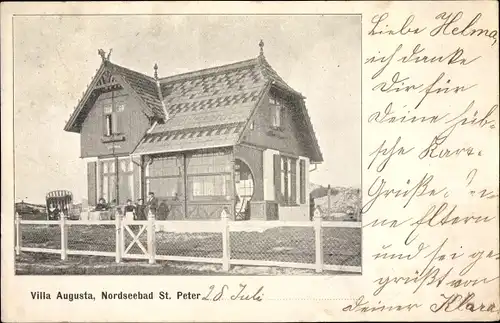 Liebe Helma,
ich danke
Dir für
Deine hüb-
sche Karte.
Grüße
ne Eltern
und sei ge-
grüßt von
Deiner Klara
Villa Augusta, Nordseebad St. Peter 28 Juli